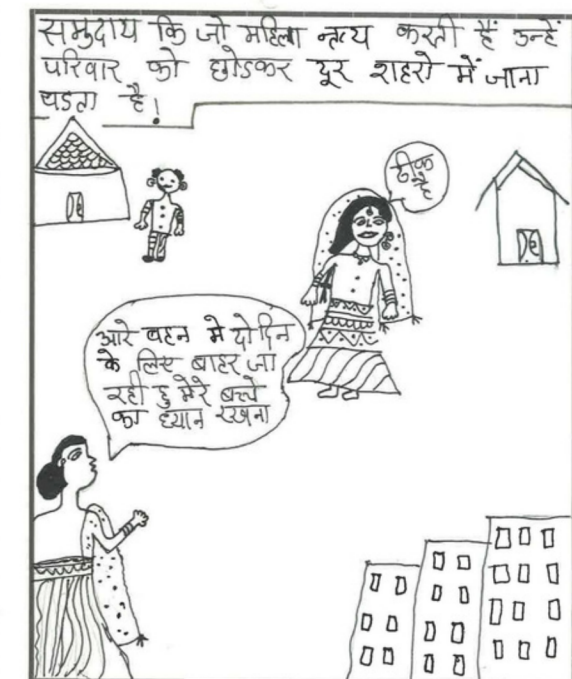 समुदाय कि जो महिला नृत्य करती हैं उन्हें
परिवार को छोडकर दूर शहरो में जाना
पडता है!
ठीक
है
आरे बहन मे दो दिन
के लिए बाहर जा
रही हु मेरे बच्चे
का ध्यान रखना